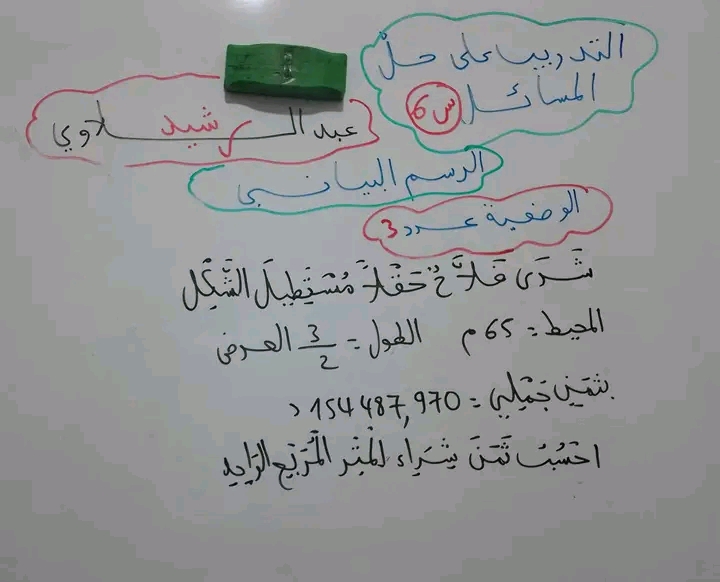 التدريب على حلّ
المسائل س6
عبد الرشيد لاوي
الرسم البياني
الوضعية عدد 3
شَرَى فَلاَّحٌ حَقْلاً مُسْتَطِيلَ الشَّكْل
المحيط = 65 م الطول = 3/2 العرض
بثمن جملي = 154487,970 د
احْسُبْ ثَمَنَ شِرَاء المْتِر المُرَبَّع الوَاحِد